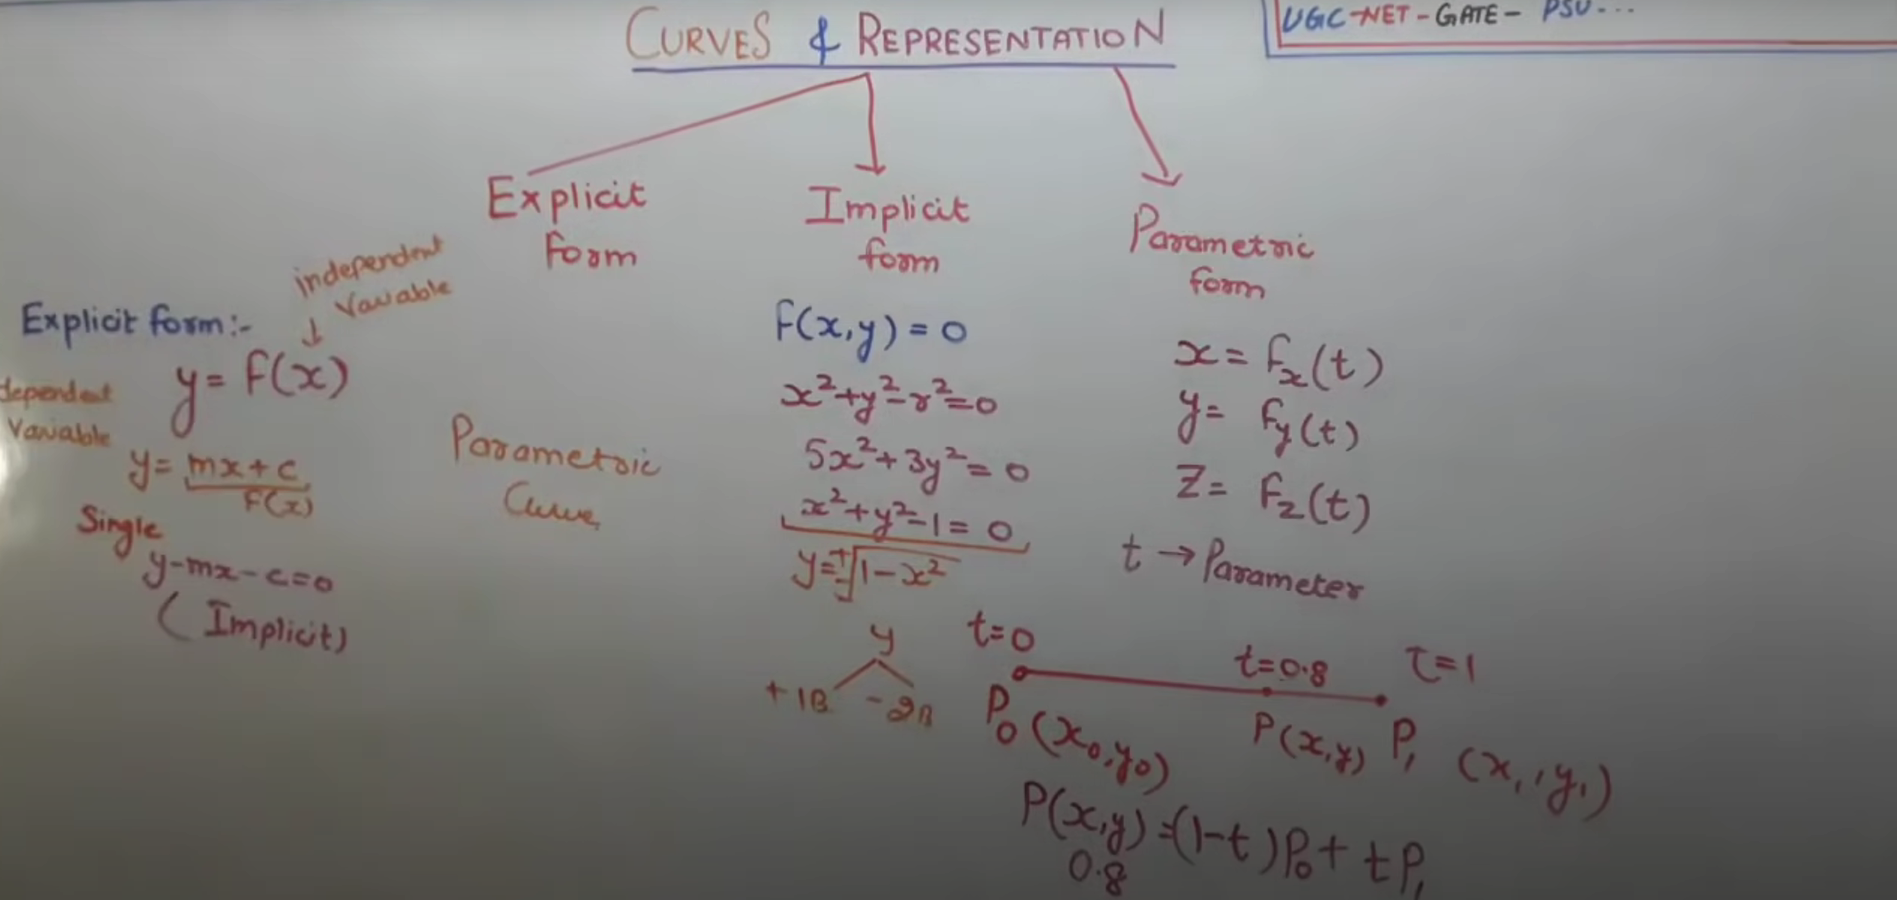 CURVES & REPRESENTATION
UGC-NET-GATE- PSU...
Explicit
Form
Implicit
form
Parametric
form
independent
Variable
Explicit form:-
y = F(x)
dependent
Variable
y = mx+c
F(x)
Single
y-mx-c=0
(Implicit)
Parametric
Curve,
F(x,y) = 0
x²+y²-r²=0
5x²+3y²=0
x²+y²-1=0
y=±√1-x²
y
x = Fx(t)
y = Fy(t)
Z = Fz(t)
t → Parameter
t=0
t=0.8
t=1
P0 (x0,y0)
P(x,y)
P1 (x1,y1)
P(x,y)=(1-t)P0+tP1
0.8